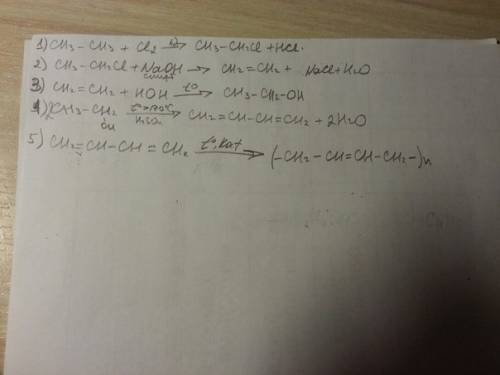 1) CH3-CH3 + Cl2 → CH3-CH2Cl + HCl.
2) CH3-CH2Cl + NaOH спирт → CH2=CH2 + NaCl + H2O
3) CH2=CH2 + HOH t° → CH3-CH2-OH
4) 2CH3-CH2 OH H2SO4 → CH2=CH-CH=CH2 + 2H2O
5) CH2=CH-CH=CH2 t°, kat → (-CH2-CH=CH-CH2-)n